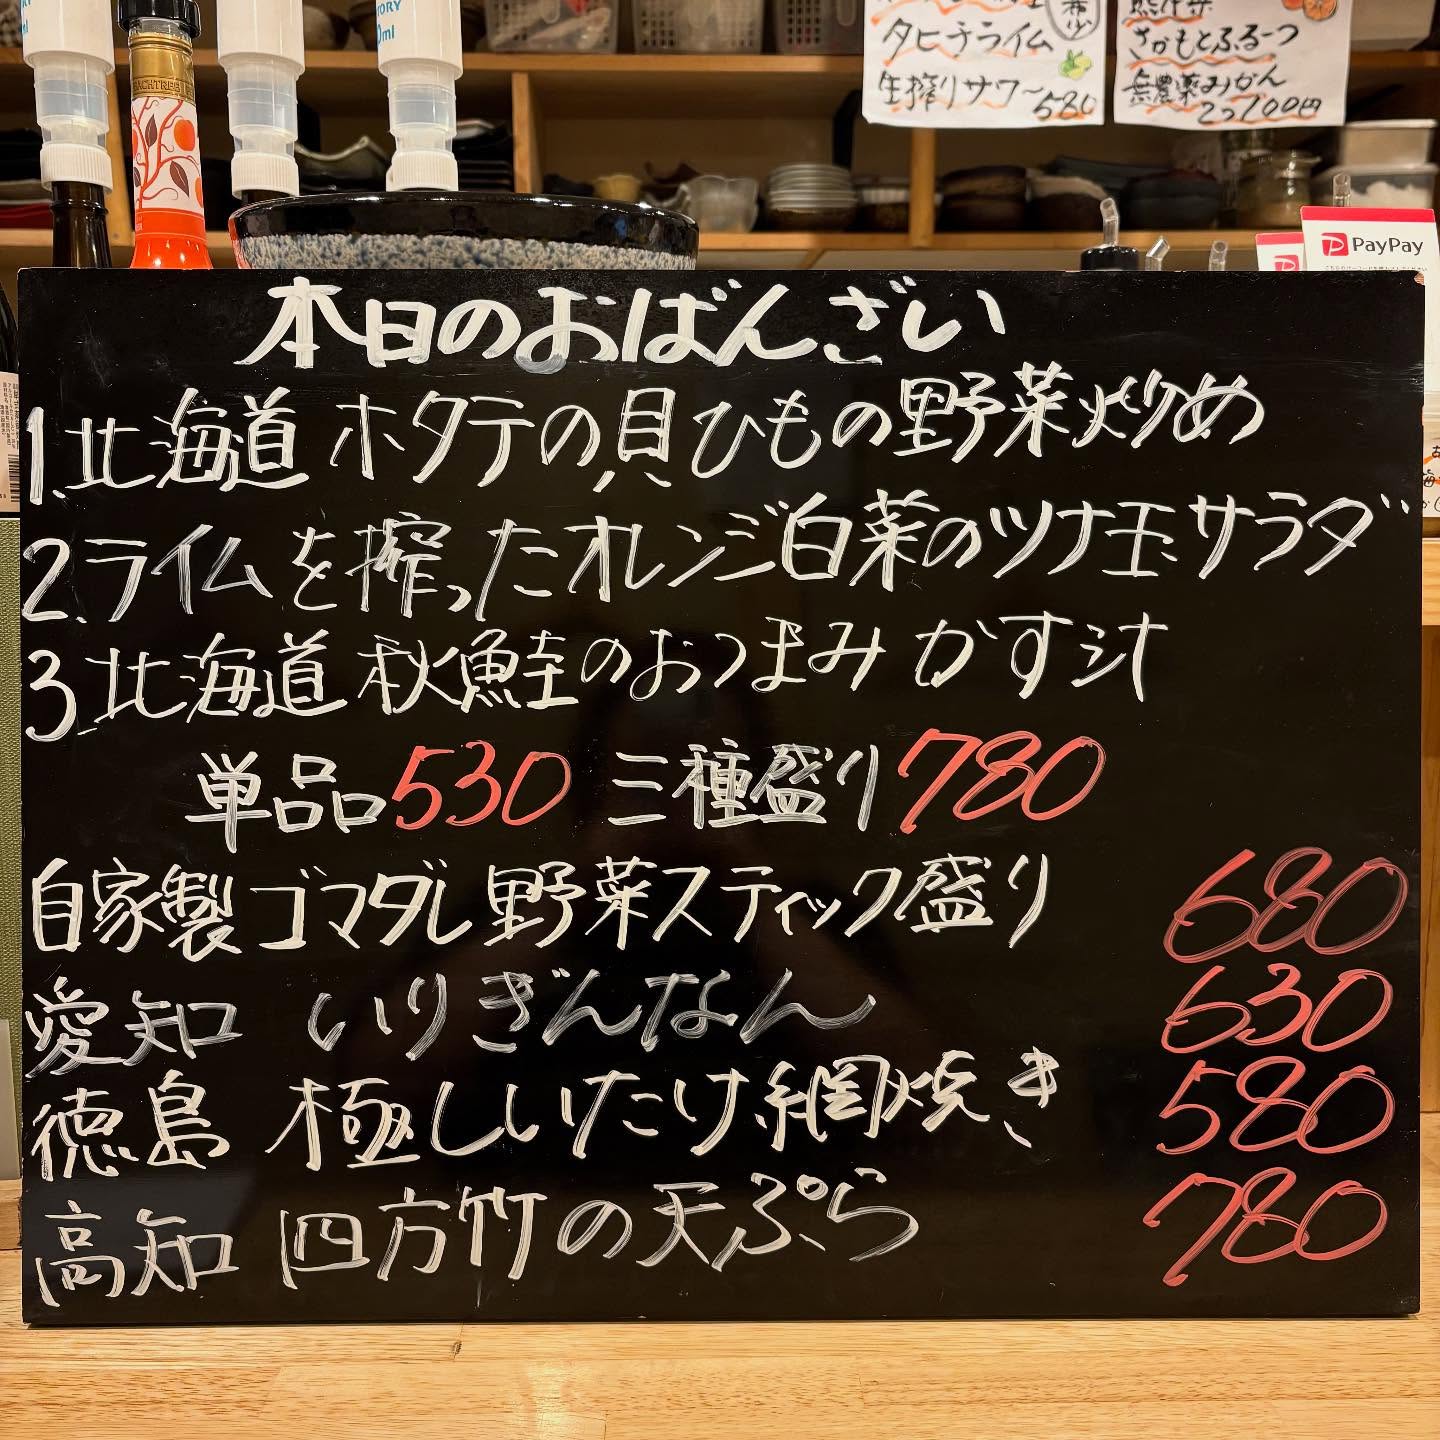 タヒチライム
生搾りサワー580
さかもとふるーつ
無農薬みかん
2コ700円
PayPay
本日のおばんざい
1.北海道 ホタテの貝ひもの野菜炒め
2.ライムを搾ったオレンジ白菜のツナ玉サラダ
3.北海道 秋鮭のおつまみかす汁
単品530 三種盛り780
自家製ゴマダレ野菜スティック盛り 680
愛知 いりぎんなん 630
徳島 極しいたけ網焼き 580
高知 四方竹の天ぷら 780